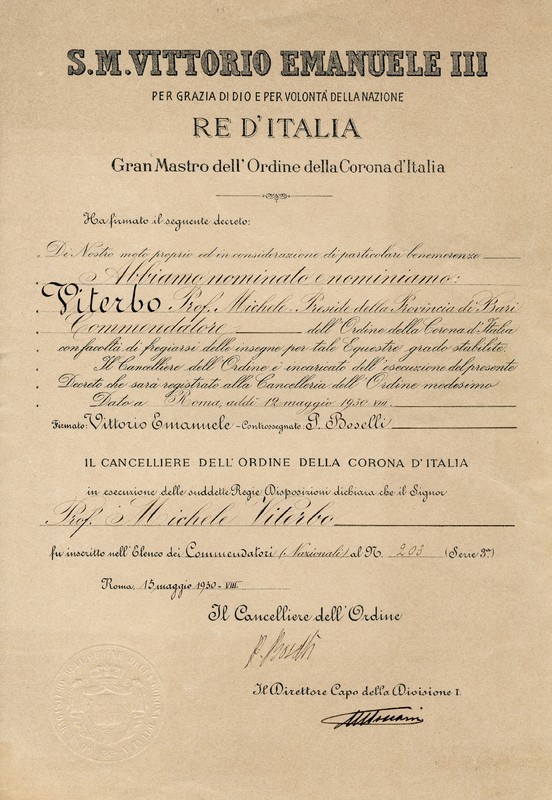 S.M. VITTORIO EMANUELE III
PER GRAZIA DI DIO E PER VOLONTÀ DELLA NAZIONE
RE D'ITALIA
Gran Mastro dell'Ordine della Corona d'Italia
Ha firmato il seguente decreto:
Di Nostro moto proprio ed in considerazione di particolari benemerenze
Abbiamo nominato e nominiamo:
Viterbo Prof. Michele Preside della Provincia di Bari
Commendatore dell'Ordine della Corona d'Italia
con facoltà di fregiarsi delle insegne per tale Equestre grado stabilite.
Il Cancelliere dell'Ordine è incaricato dell'esecuzione del presente
Decreto che sarà registrato alla Cancelleria dell'Ordine medesimo
Dato a Roma, addì 12 maggio 1930 VIII.
Firmato: Vittorio Emanuele - Controssegnato: P. Boselli
IL CANCELLIERE DELL'ORDINE DELLA CORONA D'ITALIA
in esecuzione delle suddette Regie Disposizioni dichiara che il Signor
Prof. Michele Viterbo
fu inscritto nell'Elenco dei Commendatori (Nazionali) al N. 203 (Serie 3ª)
Roma, 15 maggio 1930 - VIII.
Il Cancelliere dell'Ordine
P. Boselli
Il Direttore Capo della Divisione I.